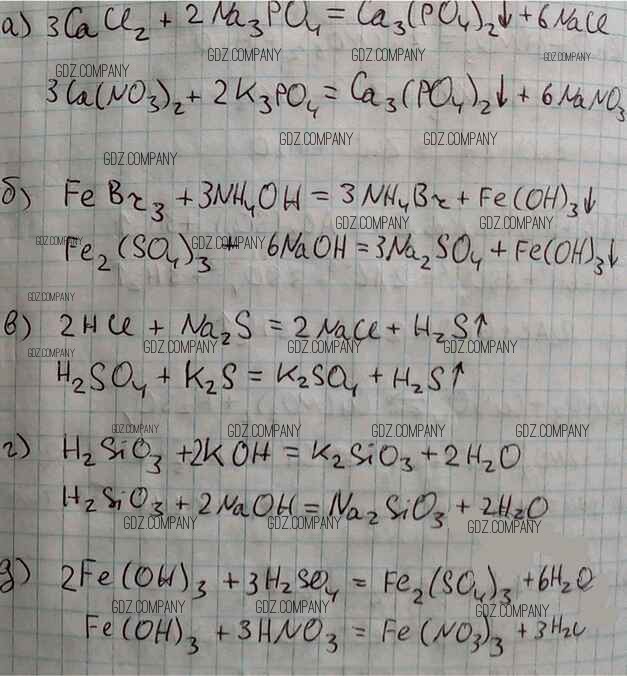 а) 3CaCl₂ + 2Na₃PO₄ = Ca₃(PO₄)₂↓ + 6NaCl
GDZ.COMPANY GDZ.COMPANY GDZ.COMPANY
GDZ.COMPANY
3Ca(NO₃)₂ + 2K₃PO₄ = Ca₃(PO₄)₂↓ + 6NaNO₃
GDZ.COMPANY GDZ.COMPANY
GDZ.COMPANY
б) FeBr₃ + 3NH₄OH = 3NH₄Br + Fe(OH)₃↓
GDZ.COMPANY GDZ.COMPANY
GDZ.COMPANY GDZ.COMPANY
Fe₂(SO₄)₃ + 6NaOH = 3Na₂SO₄ + Fe(OH)₃↓
GDZ.COMPANY
в) 2HCl + Na₂S = 2NaCl + H₂S↑
GDZ.COMPANY GDZ.COMPANY GDZ.COMPANY GDZ.COMPANY
H₂SO₄ + K₂S = K₂SO₄ + H₂S↑
GDZ.COMPANY GDZ.COMPANY GDZ.COMPANY GDZ.COMPANY
г) H₂SiO₃ + 2KOH = K₂SiO₃ + 2H₂O
H₂SiO₃ + 2NaOH = Na₂SiO₃ + 2H₂O
GDZ.COMPANY GDZ.COMPANY GDZ.COMPANY
д) 2Fe(OH)₃ + 3H₂SO₄ = Fe₂(SO₄)₃ + 6H₂O
GDZ.COMPANY GDZ.COMPANY GDZ.COMPANY
Fe(OH)₃ + 3HNO₃ = Fe(NO₃)₃ + 3H₂O